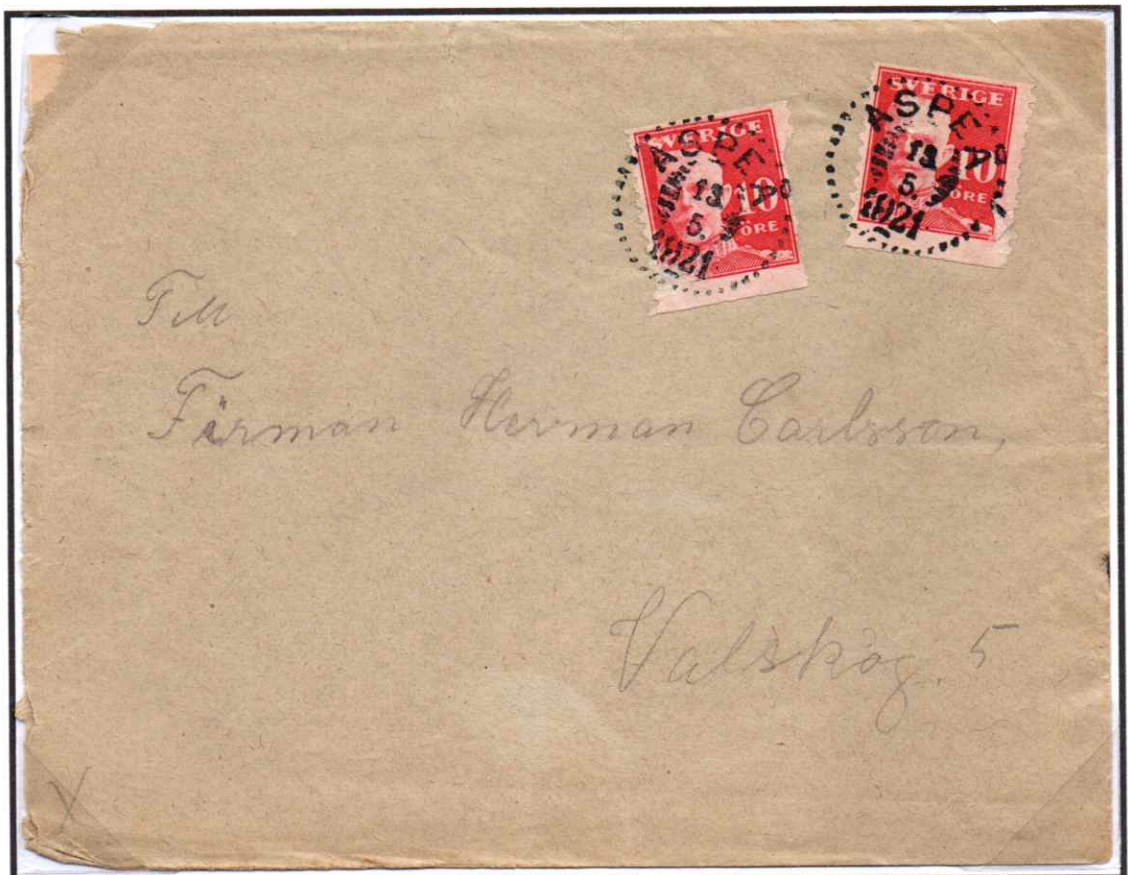 SVERIGE
10
ÖRE
ASPE
13
5.
1921
SVERIGE
10
ÖRE
ASPE
13
5.
1921
Till
Firman Herman Carlsson,
Valskog. 5
X